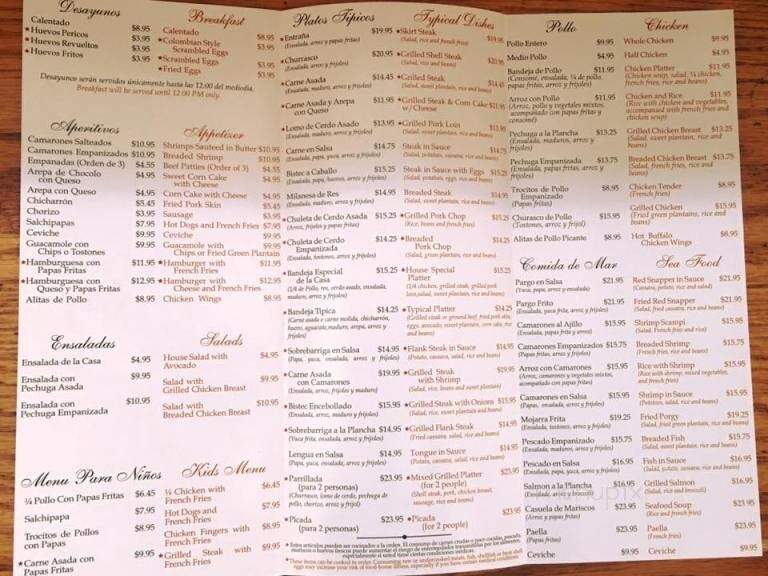 Desayunos
Calentado $8.95
Huevos Pericos $3.95
Huevos Revueltos $3.95
Huevos Fritos $3.95
Breakfast
Calentado $8.95
Colombian Style
Scrambled Eggs $3.95
Scrambled Eggs $3.95
Fried Eggs $3.95
Desayunos serán servidos únicamente hasta las 12:00 del mediodía.
Breakfast will be served until 12:00 PM only.
Aperitivos
Camarones Salteados $10.95
Camarones Empanizados $10.95
Empanadas (Orden de 3) $4.55
Arepa de Chocolo
con Queso $4.95
Arepa con Queso $4.95
Chicharrón $5.45
Chorizo $3.95
Salchipapas $7.95
Ceviche $9.95
Guacamole con
Chips o Tostones $9.95
Hamburguesa con
Papas Fritas $11.95
Hamburguesa con
Queso y Papas Fritas $12.95
Alitas de Pollo $8.95
Appetizer
Shrimps Sauteed in Butter $10.95
Breaded Shrimp $10.95
Beef Patties (Order of 3) $4.55
Sweet Corn Cake
with Cheese $4.95
Corn Cake with Cheese $4.95
Fried Pork Skin $5.45
Sausage $3.95
Hot Dogs and French Fries $7.95
Ceviche $9.95
Guacamole with $9.95
Chips or Fried Green Plantain
Hamburger with
French Fries $11.95
Hamburger with
Cheese and French Fries $12.95
Chicken Wings $8.95
Ensaladas
Ensalada de la Casa $4.95
Ensalada con
Pechuga Asada $9.95
Ensalada con
Pechuga Empanizada $10.95
Salads
House Salad with
Avocado $4.95
Salad with
Grilled Chicken Breast $9.95
Salad with
Breaded Chicken Breast $10.95
Menu Para Niños
¼ Pollo Con Papas Fritas $6.45
Salchipapa $7.95
Trocitos de Pollos
con Papas $8.95
Carne Asada con
Papas Fritas $9.95
Kids Menu
¼ Chicken with
French Fries $6.45
Hot Dogs and
French Fries $7.95
Chicken Fingers with
French Fries $8.95
Grilled Steak with
French Fries $9.95
Platos Típicos
Entraña $19.95
(Ensalada, arroz y papas fritas)
Churrasco $20.95
(Ensalada, arroz y frijoles)
Carne Asada $14.45
(Ensalada, maduro, arroz y frijoles)
Carne Asada y Arepa
con Queso $11.95
Lomo de Cerdo Asado $13.95
(Ensalada, maduro, arroz y frijoles)
Carne en Salsa $14.75
(Ensalada, papa, yuca, arroz y frijoles)
Bistec a Caballo $15.25
(Ensalada, papa, huevos, arroz y frijoles)
Milanesa de Res $14.95
(Ensalada, maduro, arroz y frijoles)
Chuleta de Cerdo Asada $15.25
(Arroz, frijoles y papas fritas)
Chuleta de Cerdo
Empanizada $14.25
(Ensalada, tostones, arroz y frijoles)
Bandeja Especial
de la Casa $15.25
(1/4 de Pollo, res, cerdo asado, ensalada,
maduro, arroz y frijoles)
Bandeja Típica $14.25
(Carne asada o carne molida, chicharrón,
huevo, aguacate, maduro, arepa, arroz y
frijoles)
Sobrebarriga en Salsa $14.95
(Papa, yuca, ensalada, arroz y frijoles)
Carne Asada
con Camarones $19.95
(Ensalada, arroz, frijoles y maduro)
Bistec Encebollado $15.95
(Ensalada, maduro, arroz y frijoles)
Sobrebarriga a la Plancha $14.95
(Yuca frita, ensalada, arroz y frijoles)
Lengua en Salsa $14.95
(Papa, yuca, ensalada, arroz y frijoles)
Parrillada
(para 2 personas) $23.95
(Churrasco, lomo de cerdo, pechuga de
pollo, chorizo, arroz y frijoles)
Picada
(para 2 personas) $23.95
Typical Dishes
Skirt Steak $19.95
(Salad, rice and french fries)
Grilled Shell Steak $20.95
(Salad, rice and beans)
Grilled Steak $14.45
(Salad, sweet plantain, rice and beans)
Grilled Steak & Corn Cake $11.95
w/Cheese
Grilled Pork Loin $13.95
(Salad, sweet plantain, rice and beans)
Steak in Sauce $14.75
(Salad, potatoes, cassava, rice and beans)
Steak in Sauce with Eggs $15.25
(Salad, potatoes, eggs, rice and beans)
Breaded Steak $14.95
(Salad, sweet plantain, rice and beans)
Grilled Pork Chop $15.25
(Rice, beans and french fries)
Breaded
Pork Chop $14.25
(Salad, green plantain, rice and beans)
House Special
Platter $15.25
(1/4 chicken, grilled steak, grilled pork
loin, salad, sweet plantain, rice and beans)
Typical Platter $14.25
(Grilled steak or ground beef, fried pork skin,
eggs, avocado, sweet plantain, corn cake, rice
and beans)
Flank Steak in Sauce $14.95
(Potato, cassava, salad, rice and beans)
Grilled Steak
with Shrimp $19.95
(Salad, rice, beans and sweet plantain)
Grilled Steak with Onions $15.95
(Salad, rice, sweet plantain and beans)
Grilled Flank Steak $14.95
(Fried cassava, salad, rice and beans)
Tongue in Sauce $14.95
(Potato, cassava, salad, rice and beans)
Mixed Grilled Platter $23.95
(for 2 people)
(Shell steak, pork, chicken breast,
sausage, rice and beans)
Picada $23.95
(for 2 people)
Pollo
Pollo Entero $9.95
Medio Pollo $4.95
Bandeja de Pollo $11.95
(Consomé, ensalada, ¼ de pollo,
papas fritas, arroz y frijoles)
Arroz con Pollo $11.95
(Arroz, pollo y vegetales mixtos,
acompañado con papas fritas y
consomé)
Pechuga a la Plancha $13.25
(Ensalada, maduro, arroz y
frijoles)
Pechuga Empanizada $13.75
(Ensalada, papas fritas, arroz y
frijoles)
Trocitos de Pollo
Empanizado $8.95
(Papas fritas)
Churasco de Pollo $15.95
(Tostones, arroz y frijol)
Alitas de Pollo Picante $8.95
Chicken
Whole Chicken $9.95
Half Chicken $4.95
Chicken Platter $11.95
(Chicken soup, salad, ¼ chicken,
french fries, rice and beans)
Chicken and Rice $11.95
(Rice with chicken and vegetables,
accompanied with french fries and
chicken soup)
Grilled Chicken Breast $13.25
(Salad, sweet plantain, rice and
beans)
Breaded Chicken Breast $13.75
(Salad, french fries, rice and
beans)
Chicken Tender $8.95
(French fries)
Grilled Chicken $15.95
(Fried green plantains, rice and
beans)
Hot Buffalo
Chicken Wings $8.95
Comida de Mar
Pargo en Salsa $21.95
(Yuca, papa, arroz y ensalada)
Pargo Frito $21.95
(Ensalada, yuca frita, arroz y frijoles)
Camarones al Ajillo $15.95
(Ensalada, papas fritas y arroz)
Camarones Empanizados $15.75
(Papas fritas, arroz y frijoles)
Arroz con Camarones $15.95
(Arroz, camarones y vegetales mixtos,
acompañado con papas fritas)
Camarones en Salsa $15.95
(Papas, ensalada, arroz y frijoles)
Mojarra Frita $19.25
(Ensalada, tostones, arroz y frijoles)
Pescado Empanizado $15.75
(Ensalada, maduros, arroz y frijoles)
Pescado en Salsa $16.95
(Ensalada, yuca, papas, arroz y frijoles)
Salmon a la Plancha $16.95
(Ensalada, arroz y broccoli)
Casuela de Mariscos $23.95
(Arroz y papas fritas)
Paella $23.95
(Papas fritas)
Ceviche $9.95
Sea Food
Red Snapper in Sauce $21.95
(Cassava, potato, rice and salad)
Fried Red Snapper $21.95
(Salad, fried cassava, rice and beans)
Shrimp Scampi $15.95
(Salad, French fries and rice)
Breaded Shrimp $15.75
(French fries, rice and beans)
Rice with Shrimp $15.95
(Rice with shrimp, mixed vegetables,
and french fries)
Shrimp in Sauce $15.95
(Potatoes, salad, rice and beans)
Fried Porgy $19.25
(Salad, fried green plantain, rice and beans)
Breaded Fish $15.75
(Salad, sweet plantain, rice and beans)
Fish in Sauce $16.95
(Salad, yucca, potato, cassava, rice and beans)
Grilled Salmon $16.95
(Salad, rice and broccoli)
Seafood Soup $23.95
(Rice and french fries)
Paella $23.95
(French fries)
Ceviche $9.95